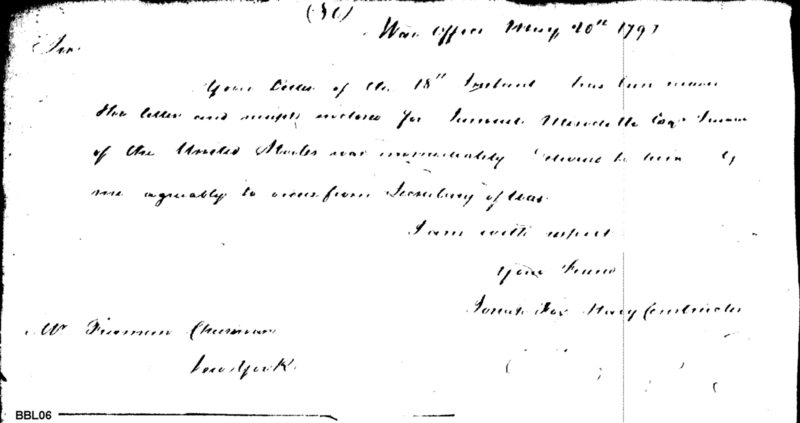 War Office May 20th 1797
Sir
Your Letter of the 18th Instant has been
the letter and enclosed for Samuel Meredith Esqr
of the United States was immediately to him by
me agreeably to orders from Secretary of War
I am with respect
Your Friend
Fox Navy Constructor
Mr Cheeseman
New York
BBL06